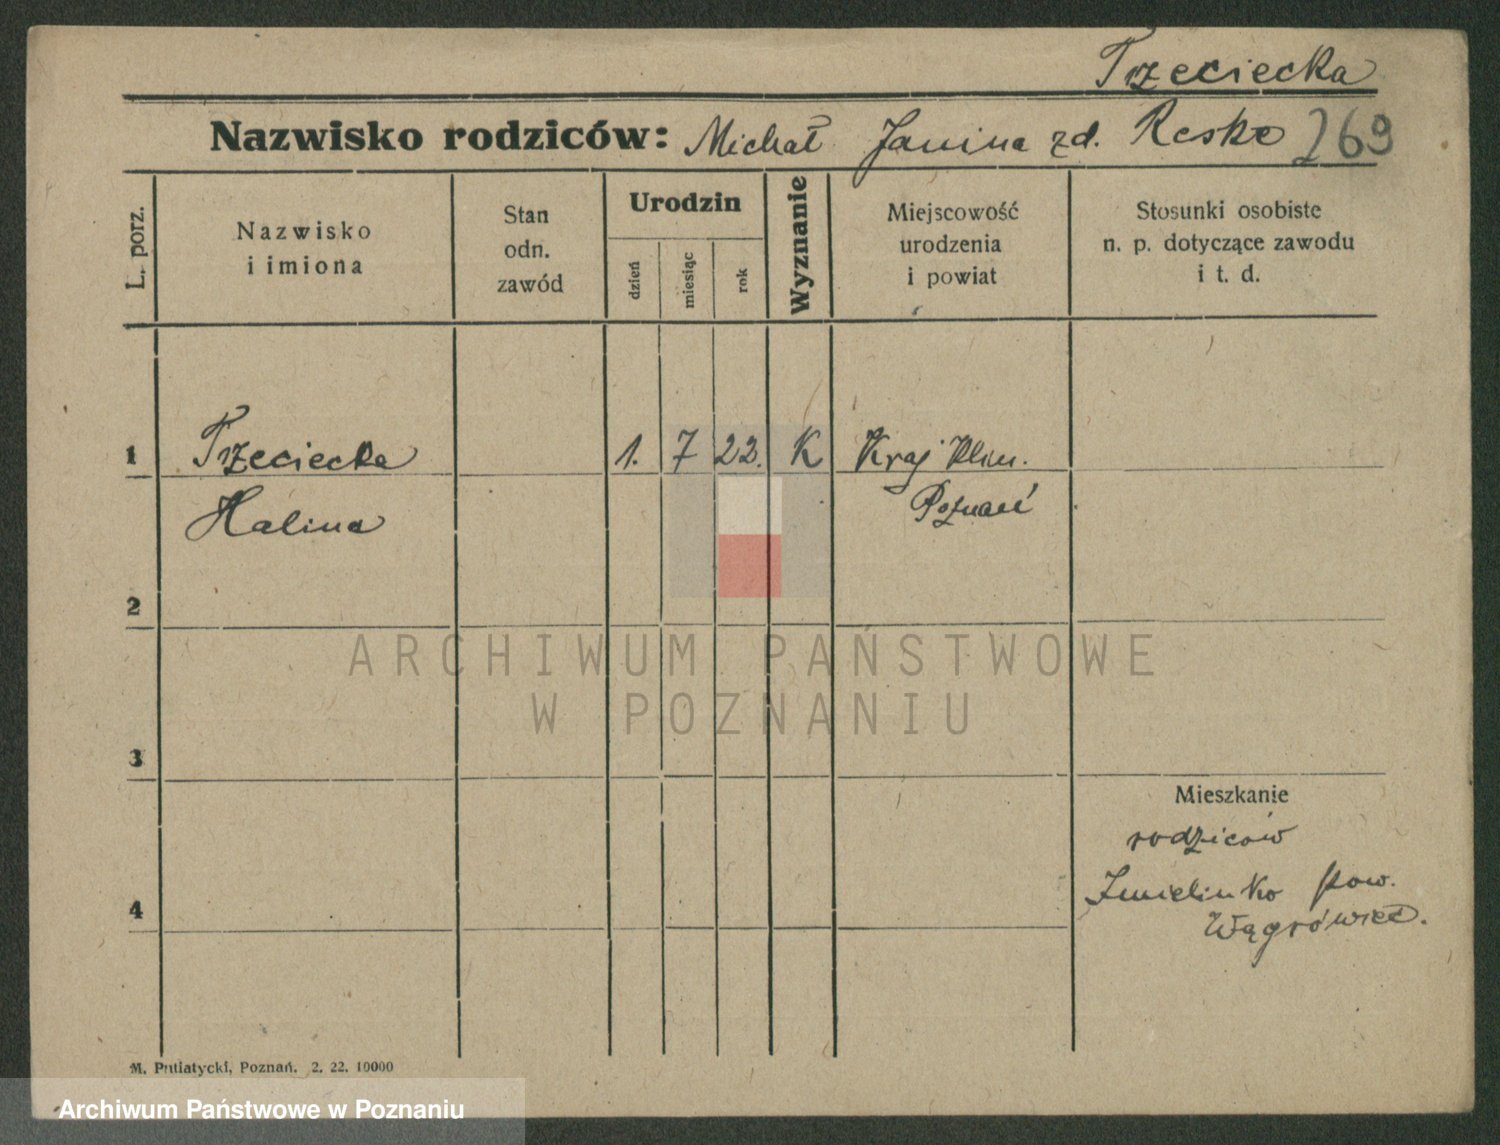 Trzeciecka
Nazwisko rodziców: Michał Janina zd. Reske 269
L. porz.
Nazwisko
i imiona
Stan
odn.
zawód
Urodzin
dzień
miesiąc
rok
Wyznanie
Miejscowość
urodzenia
i powiat
Stosunki osobiste
n. p. dotyczące zawodu
i t. d.
1 Trzeciecka 1. 7 22. K Kraj. Klin.
Halina Poznań
2
ARCHIWUM PAŃSTWOWE
W POZNANIU
3
Mieszkanie
rodziców
4 Żmielinko pow.
Wągrówiec.
M. Putiatycki, Poznań. 2. 22. 10000
Archiwum Państwowe w Poznaniu